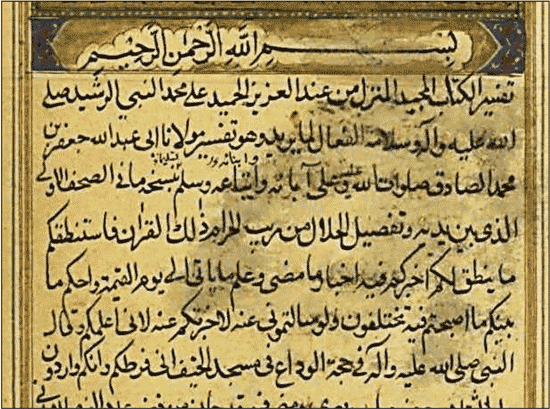 بسم الله الرحمن الرحيم
تفسير الكتاب المجيد المنزل من عند العزيز الحميد على محمد النبي الرشيد صلى
الله عليه وآله وسلامه الفعال لما يريد وهو تفسير مولانا ابى عبدالله جعفر بن
محمد الصادق صلوات الله عليه وعلى آبائه واتباعه وسلم نسخة ما فى الصحف الاولى
الذى بين يديه وتفصيل الحلال من ريب الحرام ذلك القران فاستنطقوه
ما ينطق لكم اخبركم فيه اخبار ما مضى وعلم ما ياتى الى يوم القيمة واحكم ما
بينكم ما اصبحتم فيه تختلفون ولو سالتمونى عنه لاخبرتكم عنه لانى اعلمكم وقال
النبى صلى الله عليه وآله فى حجة الوداع فى مسجد الخيف انى فرطكم وانكم واردون